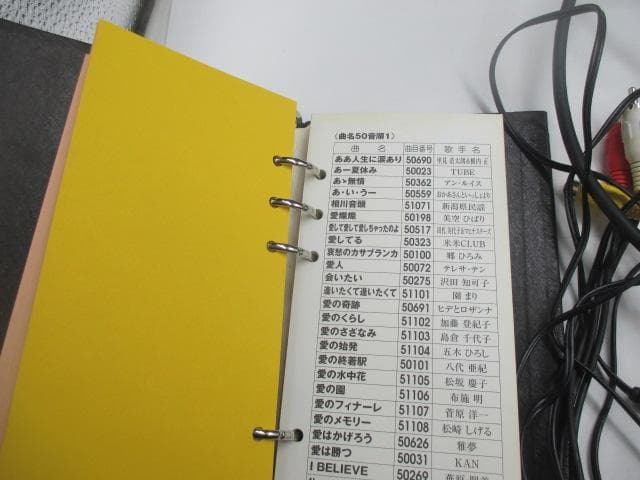 (曲名50音順1)
曲 名 曲目番号 歌手名
ああ人生に涙あり 50690 里見浩太朗&横内正
あー夏休み 50023 TUBE
あゝ無情 50362 アン・ルイス
あ・い・うー 50559 おかあさんといっしょより
相川音頭 51071 新潟県民謡
愛燦燦 50198 美空 ひばり
愛して愛して愛しちゃったのよ 50517 田代 美代子&マヒナスターズ
愛してる 50323 米米CLUB
哀愁のカサブランカ 50100 郷 ひろみ
愛人 50072 テレサ・テン
会いたい 50275 沢田 知可子
逢いたくて逢いたくて 51101 園 まり
愛の奇跡 50691 ヒデとロザンナ
愛のくらし 51102 加藤 登紀子
愛のさざなみ 51103 島倉 千代子
愛の始発 51104 五木 ひろし
愛の終着駅 50101 八代 亜紀
愛の水中花 51105 松坂 慶子
愛の園 51106 布施 明
愛のフィナーレ 51107 菅原 洋一
愛のメモリー 51108 松崎 しげる
愛はかげろう 50626 雅夢
愛は勝つ 50031 KAN
I BELIEVE 50269